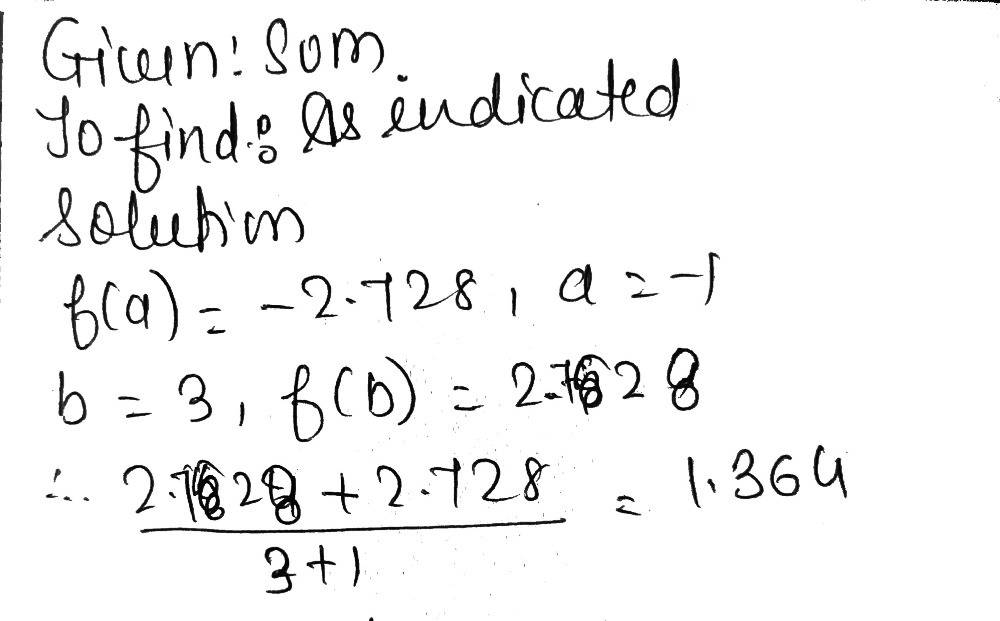 Given: Som.
To find: As indicated
Solution
f(a) = -2.728, a = -1
b = 3, f(b) = 2.728
∴ 2.728 + 2.728 / 3+1 = 1.364